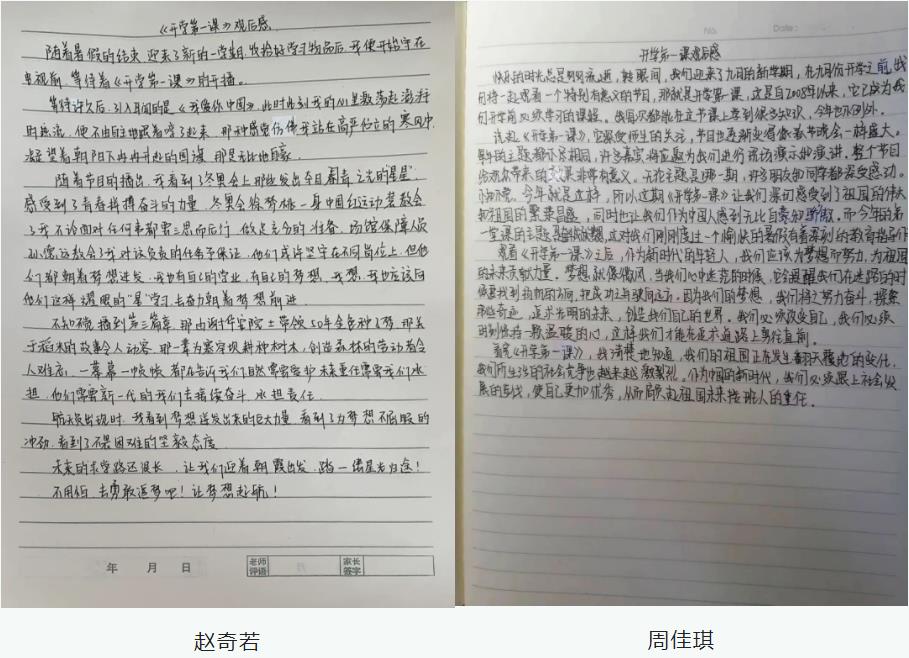 《开学第一课》观后感
随着暑假的结束,迎来了新的一学期,收拾好学习物品后,我便开始守在
电视前,等待着《开学第一课》的开播。
等待许久后,引入耳间的是《我爱你中国》,此时此刻我的心里激荡起澎湃
的热流,使不由自主地跟着唱了起来,那种感觉仿佛我站在高严伫立的寒风中
凝望着朝阳下冉冉升起的国旗,那是无比地自豪。
随着节目的播出,我看到了冬奥会上那些发出夺目耀眼之光的"星星"
感受到了青春拼搏奋斗的力量,冬奥会徐梦桃一身中国红运动装教会
了我不论面对任何事都要三思而后行,做足充分的准备,场馆保障人员
教会了我对这负责的任务予保证,他们或许坚守在不同岗位上,但他
们都朝着梦想进发,我也有自己的学业,有自己的梦想,我想,我也应该向
他们这样耀眼的"星"学习,去奋力朝着梦想前进。
不知不觉播到第三篇章,那由谢华安院士带领50年
于稻米的故事令人动容,那一辈为塞罕坝耕种树木,创造森林的劳动者令
人难忘,一幕幕一帧帧都在告诉我们自然需要爱护,未来重任需要我们承
担,他们需要新一代的我们去接续奋斗,承担责任。
航天员出现时,我看到梦想迸发出来的巨大力量,看到了为梦想不屈服的
冲劲,看到了不畏困难的坚毅态度。
未来的求学路还很长,让我们迎着朝霞出发,踏一缕星光归途!
不用怕,去勇敢逐梦吧!让梦想起航!
年 月 日
老师评语
家长签字
No.
Date:
开学第一课观后感
快乐的时光总是明明流逝,转眼间,我们迎来了九月的新学期,在九月份开学之前,我
们将一起观看一个特别有意义的节目,那就是开学第一课,这是自2008年以来,它已成为我
们开学前必须学习的课程。我每次都能在这节课上学到很多知识,今年也不例外。
说起《开学第一课》,它深受师生的关注,节目也逐渐变得像春节晚会一样盛大。
每年的主题都不尽相同,许多嘉宾将应邀为我们进行现场演示和演讲,整个节目
给观众带来的效果非常有意义。无论主题是哪一期,许多朋友和同学都深受感动。
亦如既往,今年就是这样,所以这期《开学第一课》让我们深切感受到了祖国的伟大
和祖国的繁荣昌盛,同时也让我们作为中国人感到无比自豪和骄傲,而今年的第一
堂课的主题是奋斗成就梦想,这对我们刚刚度过一个愉快的暑假有着深刻的教育指导作用
观看《开学第一课》之后,作为新时代的年轻人,我们应该为梦想而努力,为祖国
的未来贡献力量,梦想就像微风,当我们心中迷茫的时候,它会提醒我们在迷路的时
候要找到前面的方向,把成功之舟驶向远方,因为我们的梦想,我们将会努力奋斗,探索
那些奇迹,追求光明的未来,创造我们自己的世界,我们必须改变自己,我们必须
时刻保持一颗温暖的心,这样我们才能在逐梦道路上勇往直前。
看完《开学第一课》,我清楚也知道,我们的祖国正在发生翻天覆地的变化,
我们所生活的社会竞争也越来越激烈。作为中国的新时代,我们必须跟上社会发
展的步伐,使自己更加优秀,从而肩负起祖国未来接班人的重任。
赵奇若
周佳琪